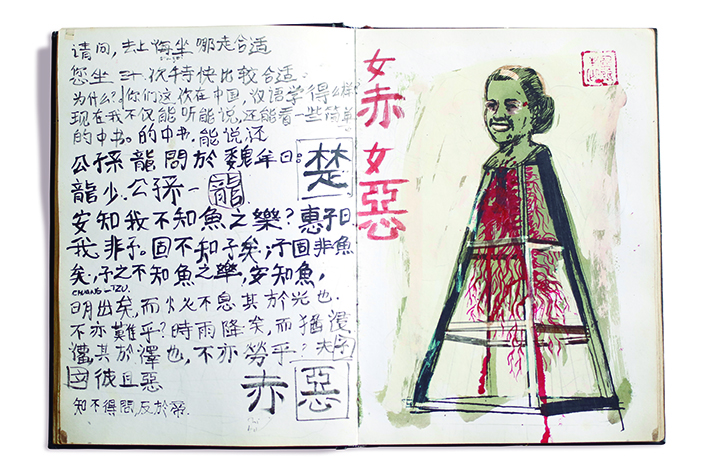 请问,去上海坐哪走合适
您坐三十次特快比较合适.
为什么?你们这次在中国,汉语学得么样
现在我不仅能听能说,还能看一些简单
的中书。的中书.能说还
公孫龍問於魏牟曰。
楚
龍少.公孫一 龍
安知我不知魚之樂?惠子曰
我非子。固不知子矣,子固非魚
矣,子之不知魚之樂,安知魚,
CHUANG-TZU.
日月出矣,而火不息其於光也.
不亦難乎?時雨降矣,而猶浸
灌,其於澤也,不亦勞乎.
彼且惡
赤惡
知不得問,反於
女赤女惡